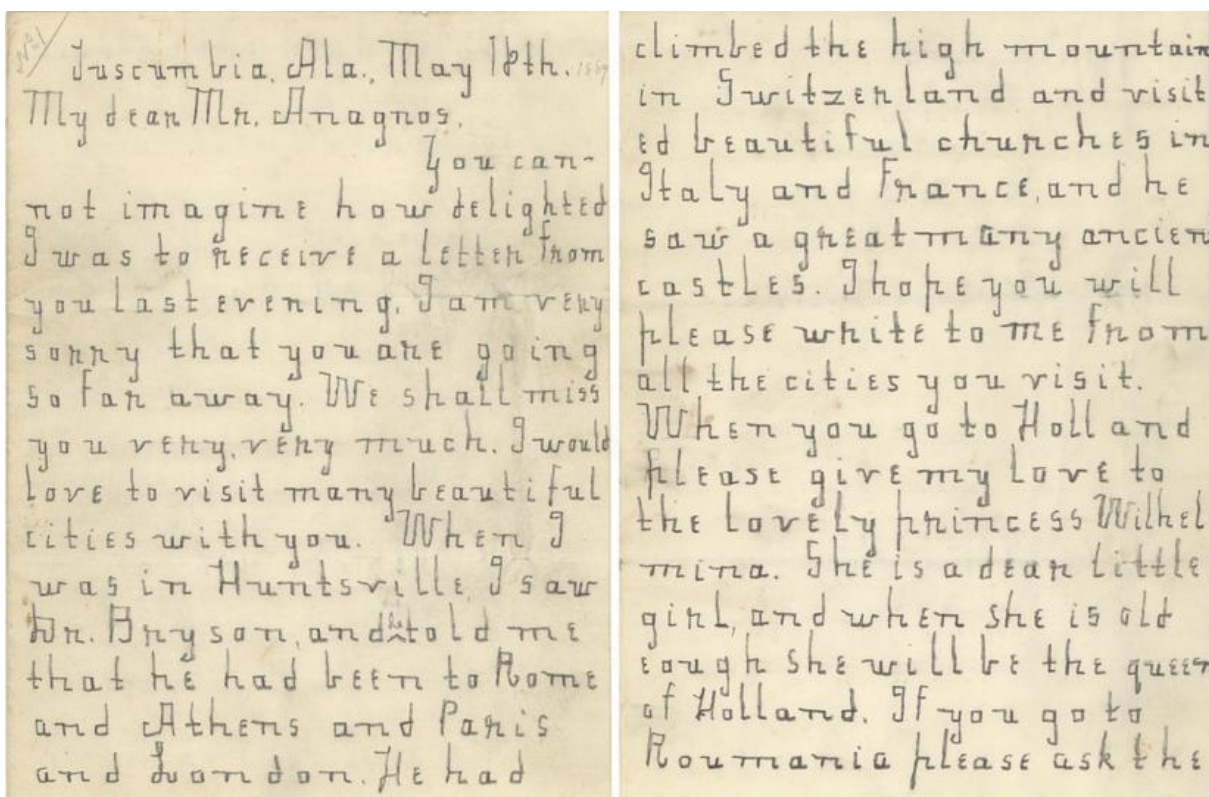 Tuscumbia, Ala., May 18th. 1889
My dear Mr. Anagnos.
You can-
not imagine how delighted
I was to receive a letter from
you last evening. I am very
sorry that you are going
so far away. We shall miss
you very, very much. I would
love to visit many beautiful
cities with you. When I
was in Huntsville I saw
Dr. Bryson, and he told me
that he had been to Rome
and Athens and Paris
and London. He had
climbed the high mountain
in Switzerland and visit
ed beautiful churches in
Italy and France, and he
saw a great many ancien
castles. I hope you will
please write to me from
all the cities you visit.
When you go to Holland
please give my love to
the lovely princess Wilhel
mina. She is a dear little
girl, and when she is old
eough she will be the queen
of Holland. If you go to
Roumania please ask the